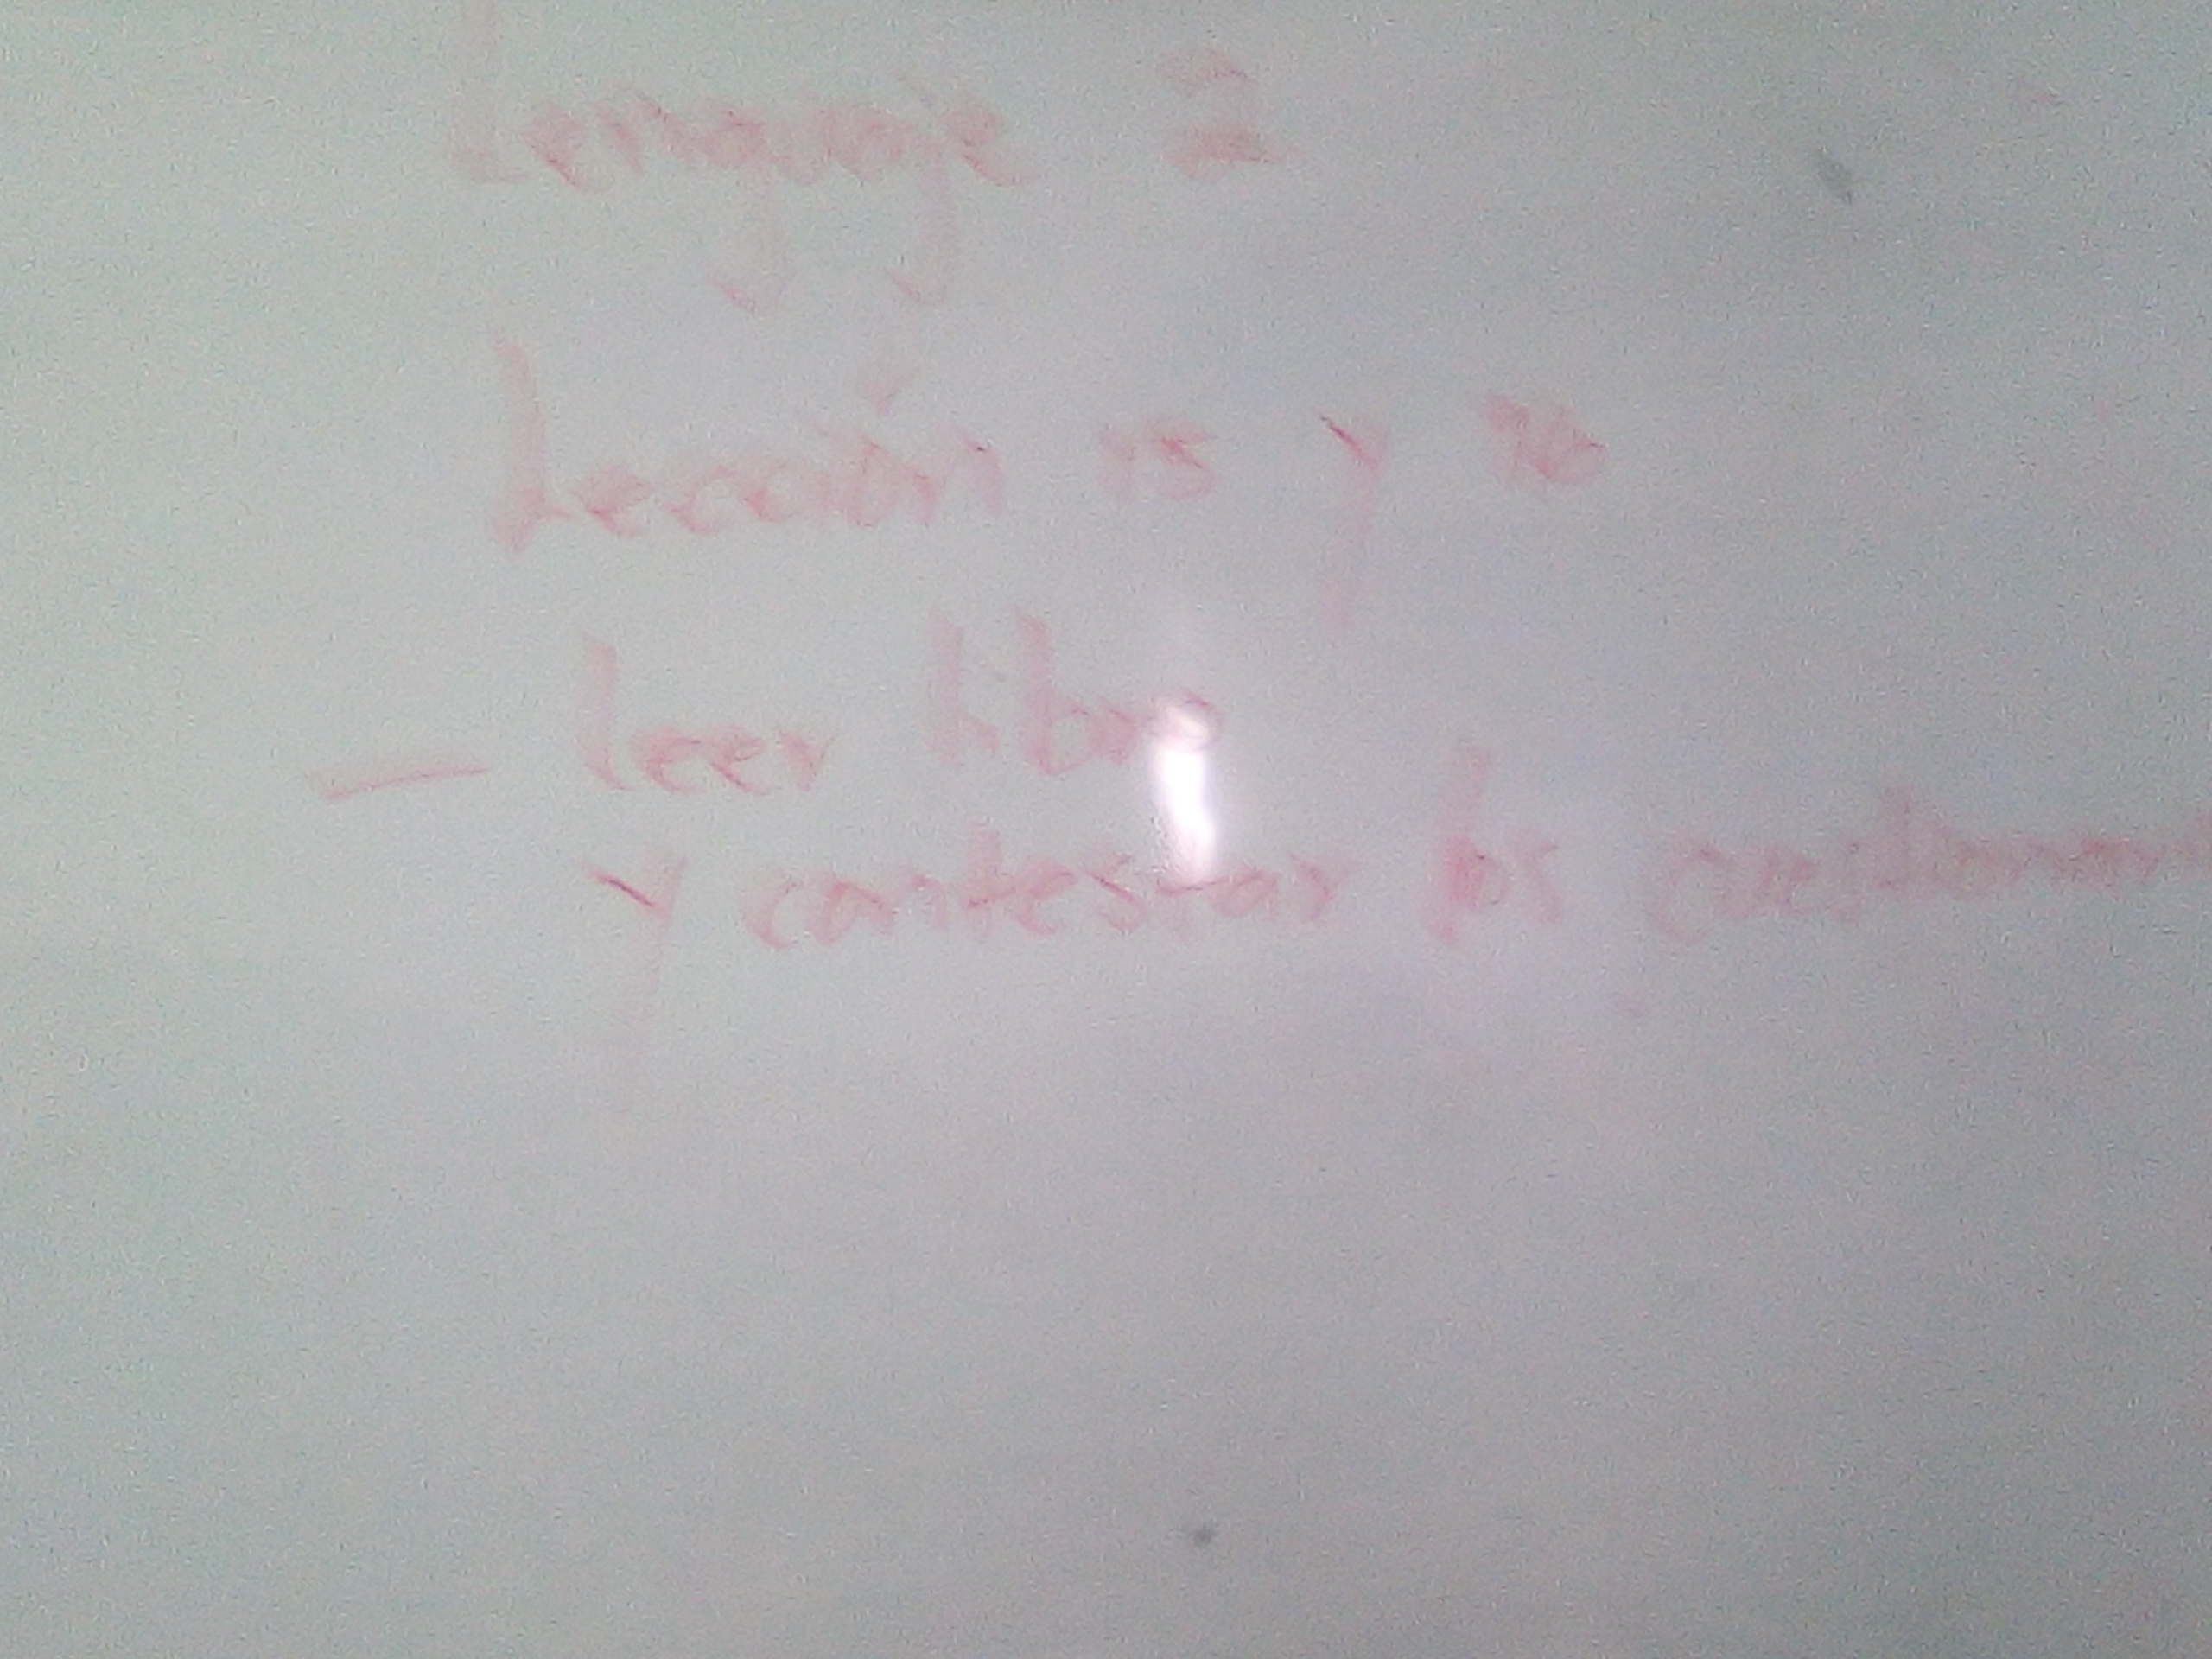 Lenguaje 2
Lección 15 y 16
— leer libro
y contestar los cuestionari